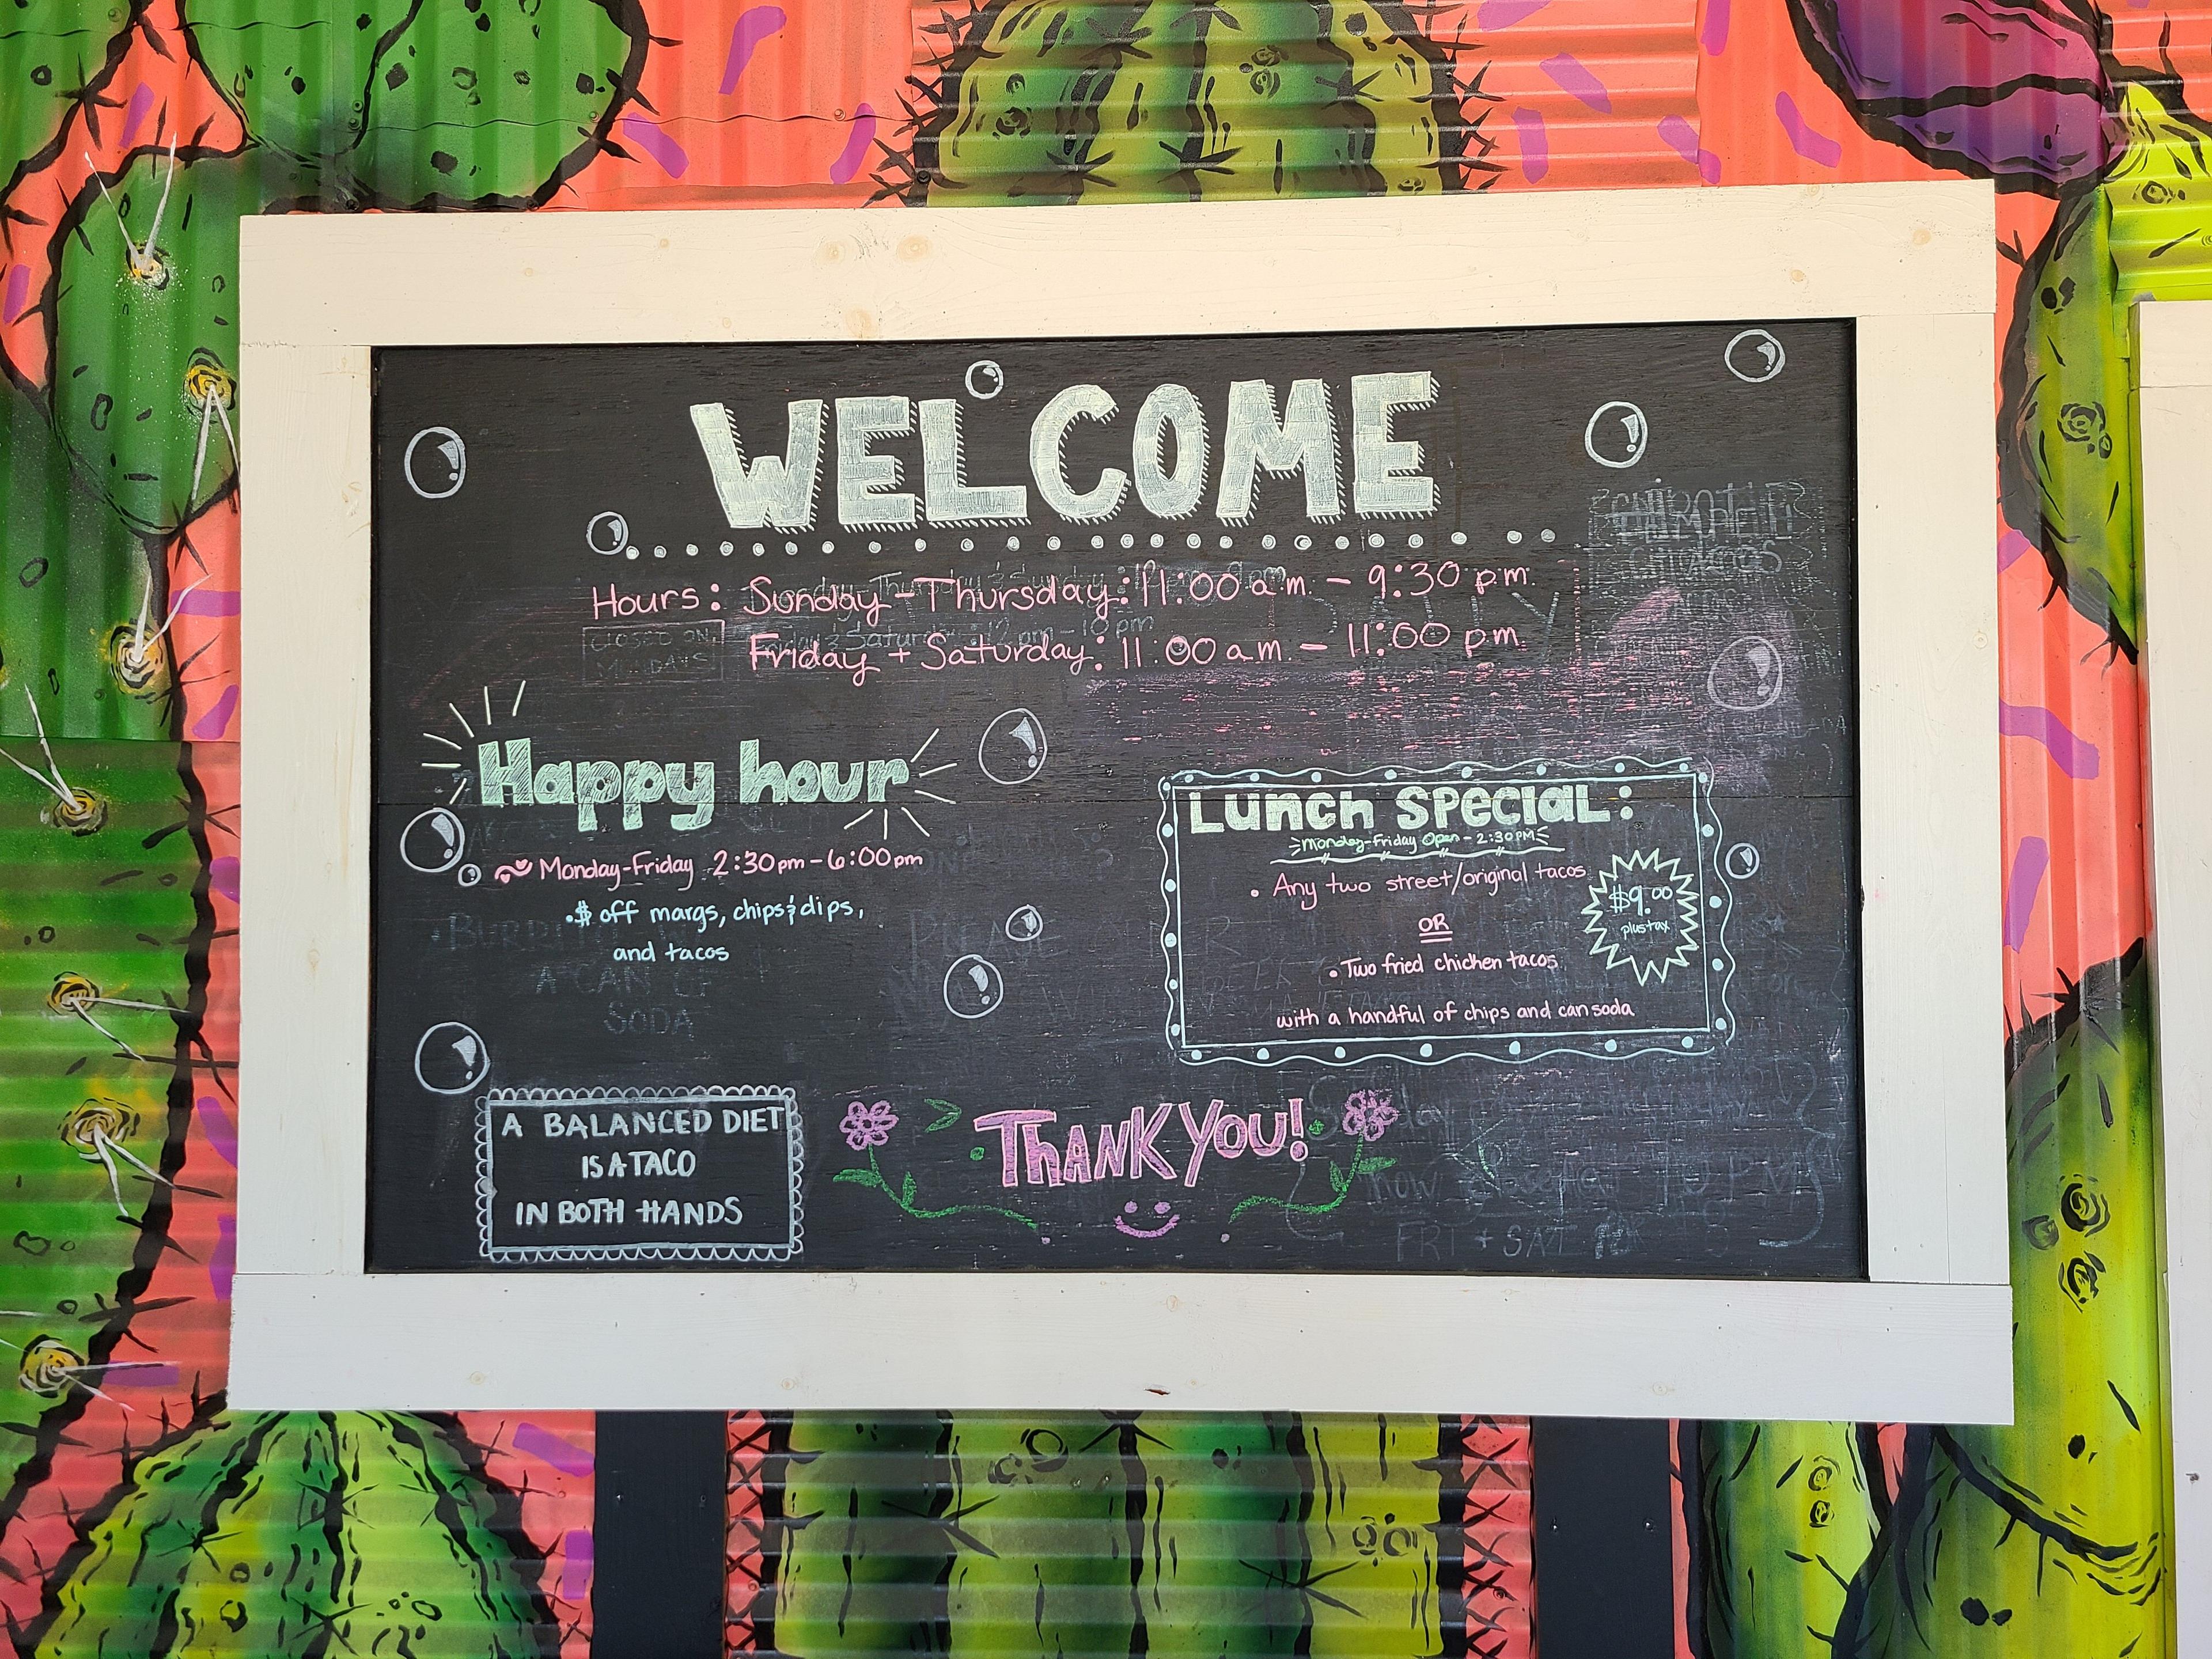 WELCOME
Hours: Sunday-Thursday: 11:00 a.m. - 9:30 p.m.
CLOSED ON
MONDAYS
Friday + Saturday: 11:00 a.m. - 11:00 p.m.
Happy hour
Monday-Friday 2:30pm-6:00pm
•$ off margs, chips & dips,
and tacos
A CAN OF
SODA
Lunch Special:
Monday-Friday Open - 2:30PM
• Any two street/original tacos
OR
• Two fried chicken tacos
with a handful of chips and can soda
$9.00
plus tax
A BALANCED DIET
IS A TACO
IN BOTH HANDS
THANK YOU!
FRI + SAT